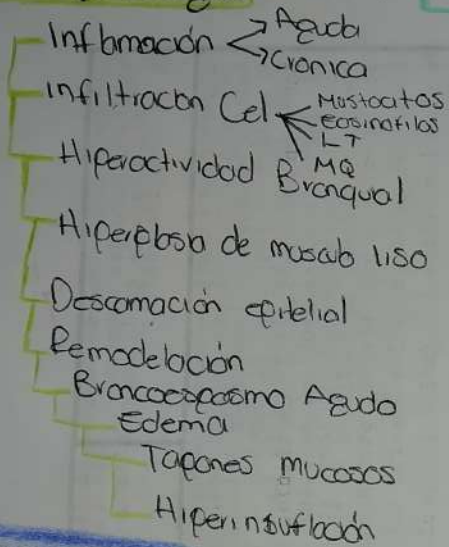 Inflamación Aguda
Crónica
Infiltración Cel Mastocitos
Eosinofilos
LT
MQ
Hiperactividad Bronquial
Hiperplasia de musculo liso
Descamación epitelial
Remodelación
Broncoespasmo Agudo
Edema
Tapones mucosos
Hiperinsuflación